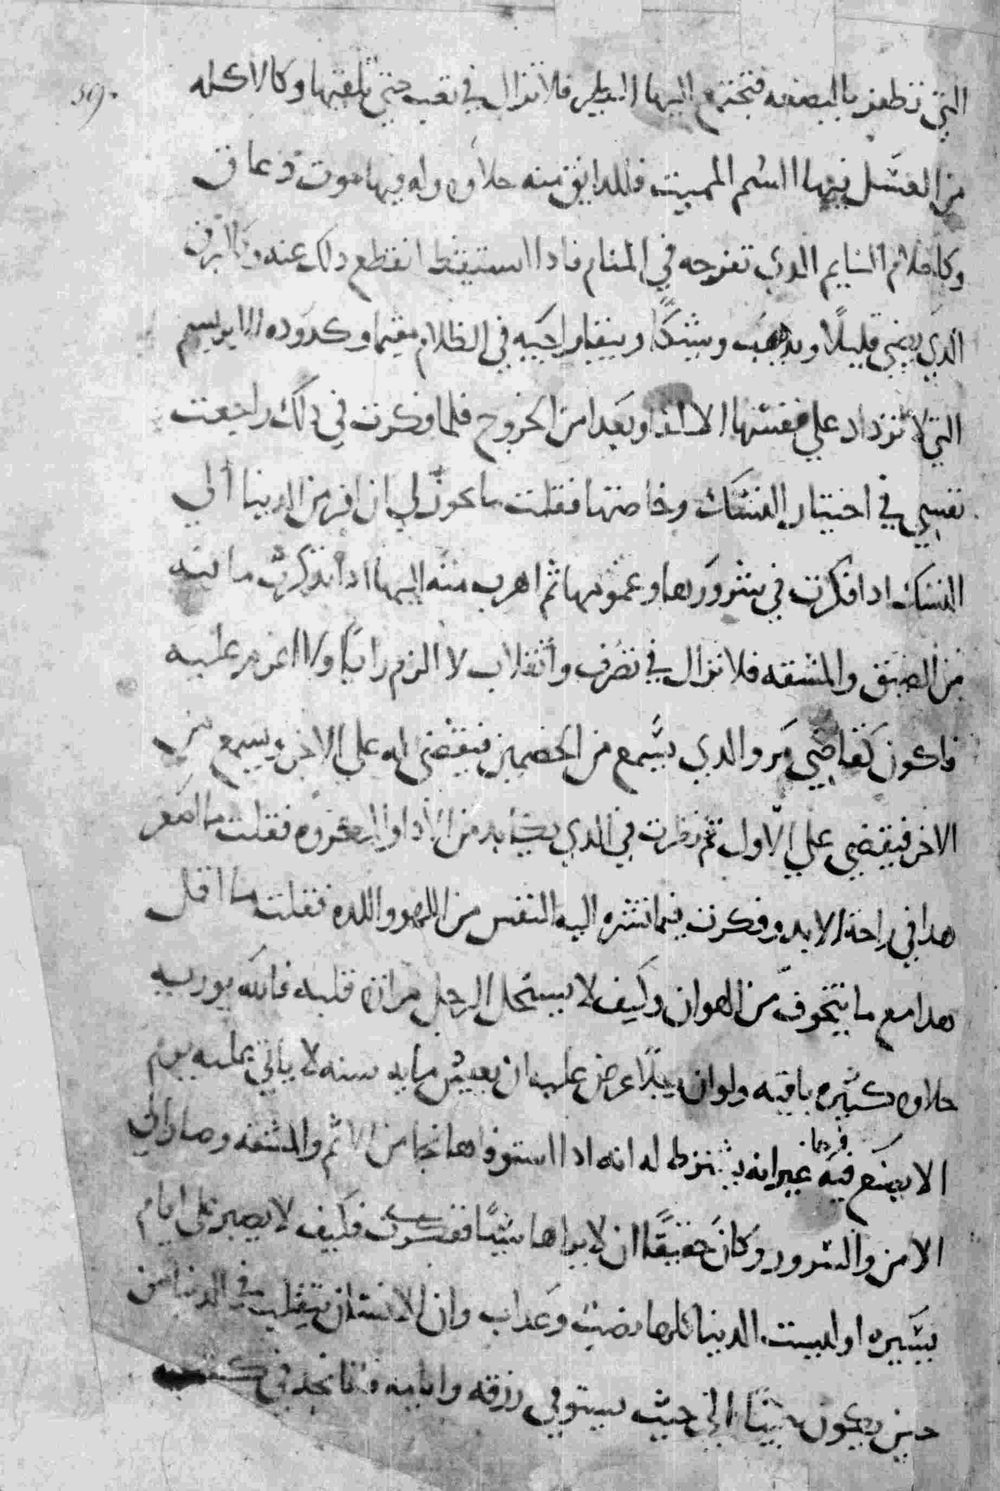 59.
التي تظفر بالبضعه فتجتمع اليها الطير فلا تزال في تعب حتي تلقيها وكالاكله
من العسل فيها السم المميت فللدايق منه حلاوه وله فيها موت دعاف
وكاحلام النايم الدي تفرحه في المنام فادا استيقظ انقطع دلك عنه وكالبرق
الدي يضي قليلًا ويدهب وشيكًا ويبقا راجيه في الظلام مقيما وكدوده الابريسم
التي لا تزداد علي نفسها لفا الا وبعدا من الخروج فلما فكرت في دلك راجعت
نفسي في اختيار النسك وخاصمتها فقلت ما يجوز لي ان افر من الدنيا الي
النسك ادا فكرت في شرورها وغمومها ثم اهرب منه اليها ادا تدكرت ما فيه
من الضيق والمشقه فلا نزال في تصرف وانقلاب لا الزم رايًا ولا اعزم عليه
فاكون كقاضي مرو الدي سمع من الخصمين فيقضي له علي الاخر ويسمع من
الاخر فيقضي علي الاول ثم نظرت في الدي يكابد من الادا والمكروه فقلت ما اصغر
هدا في راحة الابد وفكرت فيما تشره اليه النفس من اللهو واللده فقلت ما اقل
هدا مع ما يتخوف من الهوان وكيف لا يستحل الرجل مرارة قليله فانه يورثه
حلاوه كثيره باقيه ولو ان رجلًا عرض عليه ان يعيش مايه سنه لا ياتي عليه يوم
الا بضع فيه غير انه يشترط له انه ادا استوفاها نجا من الالم والمشقه وصار الي
الامن والسرور وكان حقيقًا ان لا يراها شيًا فكيف لا يصبر علي ايام
يسيره اوليست الدنيا كلها وعداب وان الانسان يتقلب في الدنيا من
حين يكون الي حيث يستوفي رزقه وايامه فانا نجد في